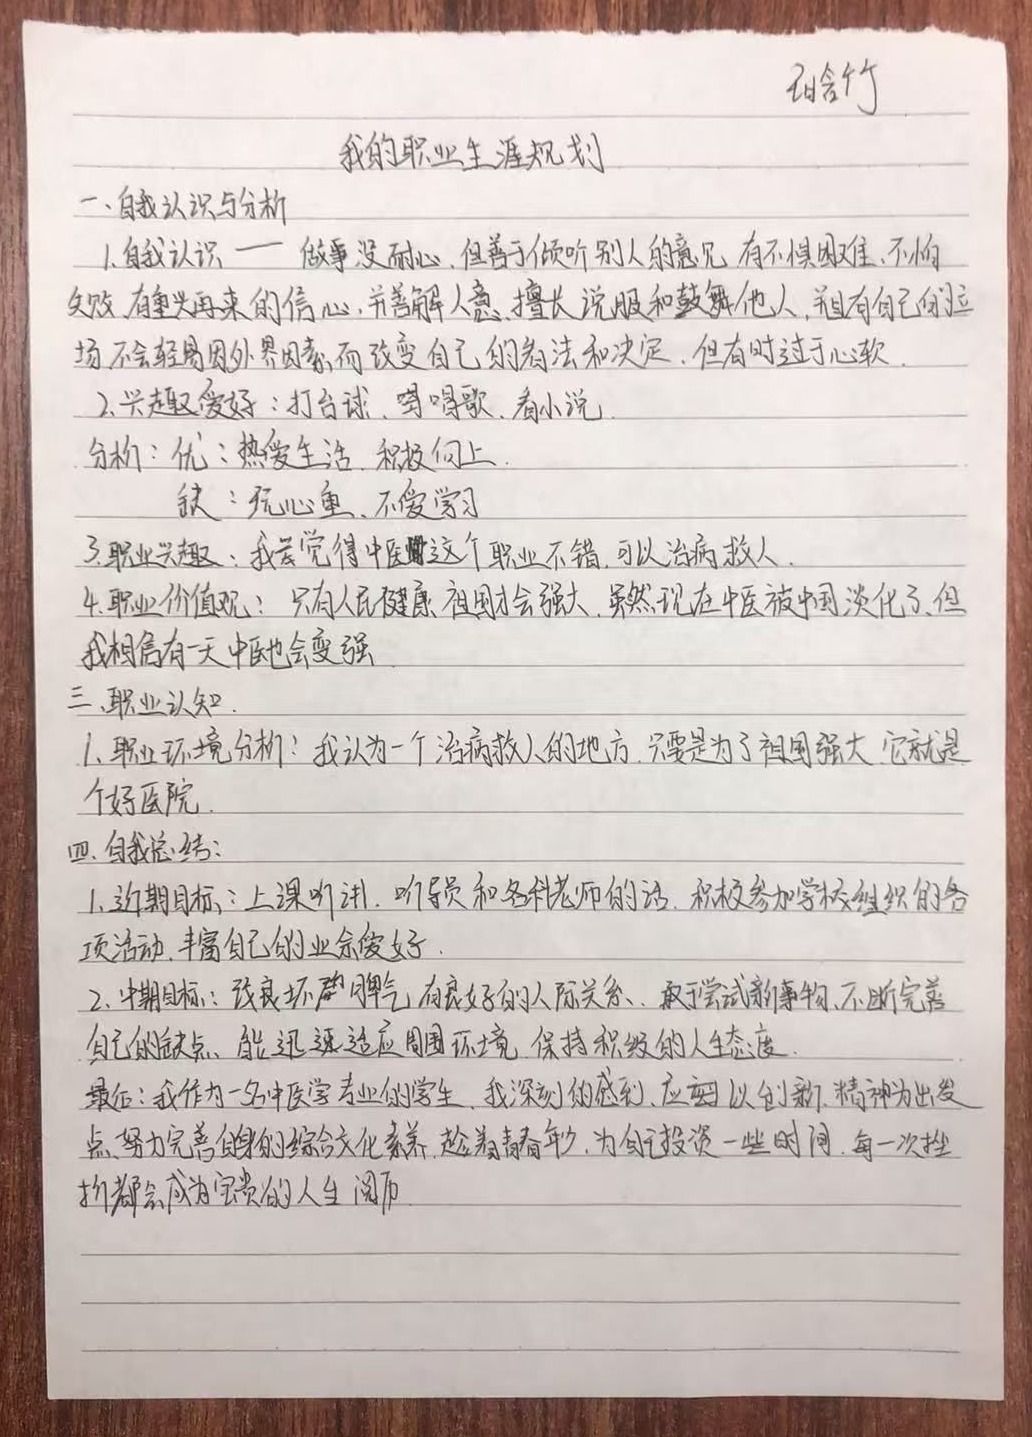 我的职业生涯规划
一、自我认识与分析
1.自我认识 —— 做事没耐心、但善于倾听别人的意见 有不惧困难、不怕
失败、有重头再来的信心、并善解人意、擅长说服和鼓舞他人、并且有自己的立
场、不会轻易因外界因素而改变自己的看法和决定、但有时过于心软、
2、兴趣爱好：打台球、唱歌、看小说、
分析：优：热爱生活、积极向上.
缺：玩心重、不爱学习
3.职业兴趣：我觉得中医这个职业不错、可以治病救人、
4.职业价值观：只有人民健康、祖国才会强大、虽然现在中医被中国淡化了、但
我相信有一天中医也会变强
三、职业认知.
1、职业环境分析：我认为一个治病救人的地方、只要是为了祖国强大、它就是
个好医院、
四、自我总结：
1、近期目标：上课听讲、听导员和各科老师的话、积极参加学校组织的各
项活动、丰富自己的业余爱好.
2、中期目标：改良坏脾气 有良好的人际关系、敢于尝试新事物、不断完善
自己的缺点、能迅速适应周围环境、保持积极的人生态度.
最后：我作为一名中医学专业的学生、我深刻的感到、应当以创新、精神为出发
点、努力完善自身的综合文化素养、趁着青春年少、为自己投资一些时间、每一次挫
折都会成为宝贵的人生阅历